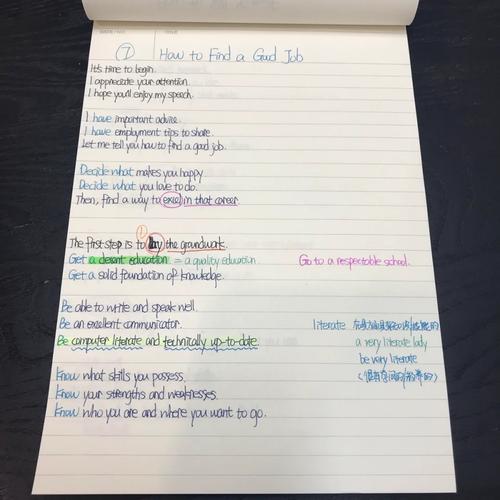 ⑦ How to Find a Good Job
It's time to begin.
I appreciate your attention.
I hope you'll enjoy my speech.
I have important advice.
I have employment tips to share.
Let me tell you how to find a good job.
Decide what makes you happy
Decide what you love to do.
Then, find a way to excel in that career.
①
The first step is to lay the groundwork.
Get a decent education = a quality education. Go to a respectable school.
Get a solid foundation of knowledge.
Be able to write and speak well.
Be an excellent communicator. literate
Be computer literate and technically up-to-date. a very literate lady
be very literate
Know what skills you possess.
Know your strengths and weaknesses.
Know who you are and where you want to go.